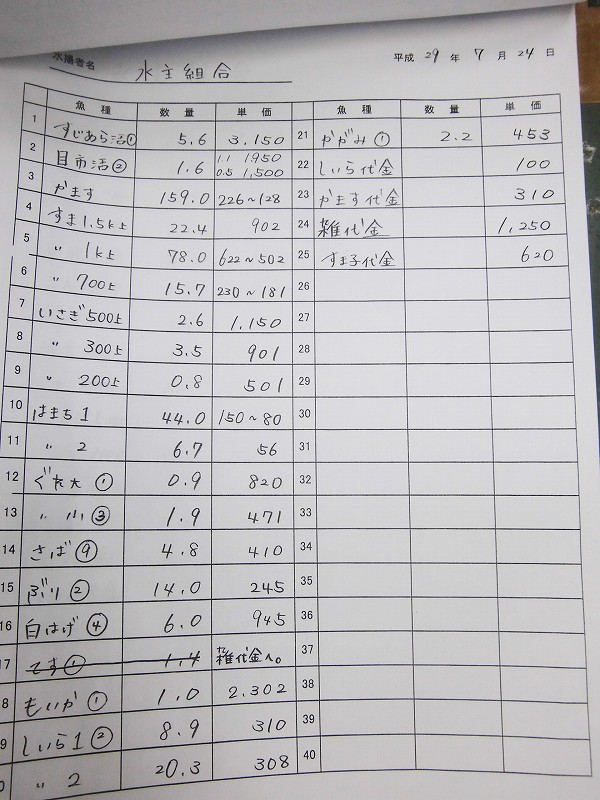 水揚者名 水主組合 平成 29 年 7 月 24 日
魚種 数量 単価 魚種 数量 単価
1 すじあら活① 5.6 3.150 21 かがみ① 2.2 453
2 目市活② 1.6 1.1 1950 0.5 1,500 22 しいら代金 100
3 かます 159.0 226~128 23 かます代金 310
4 すま1.5k上 22.4 902 24 雑代金 1,250
5 〃 1k上 78.0 622~502 25 すま子代金 620
6 〃 700上 15.7 230~181 26
7 いさぎ500上 2.6 1.150 27
8 〃 300上 3.5 901 28
9 〃 200上 0.8 501 29
10 はまち1 44.0 150~80 30
11 〃 2 6.7 56 31
12 ぐれ大① 0.9 820 32
13 〃 小③ 1.9 471 33
14 さば⑨ 4.8 410 34
15 ぶり② 14.0 245 35
16 白はげ④ 6.0 945 36
17 てす① 1.4 雑代金へ。 37
8 もいか① 1.0 2.302 38
9 しいら1② 8.9 310 39
0 〃 2 20.3 308 40